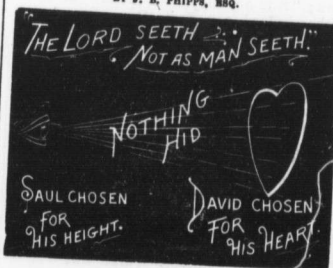 BY J. B. PHIPPS, ESQ.
"THE LORD SEETH
NOT AS MAN SEETH."
NOTHING
HID
SAUL CHOSEN
FOR
HIS HEIGHT.
DAVID CHOSEN
FOR
HIS HEART